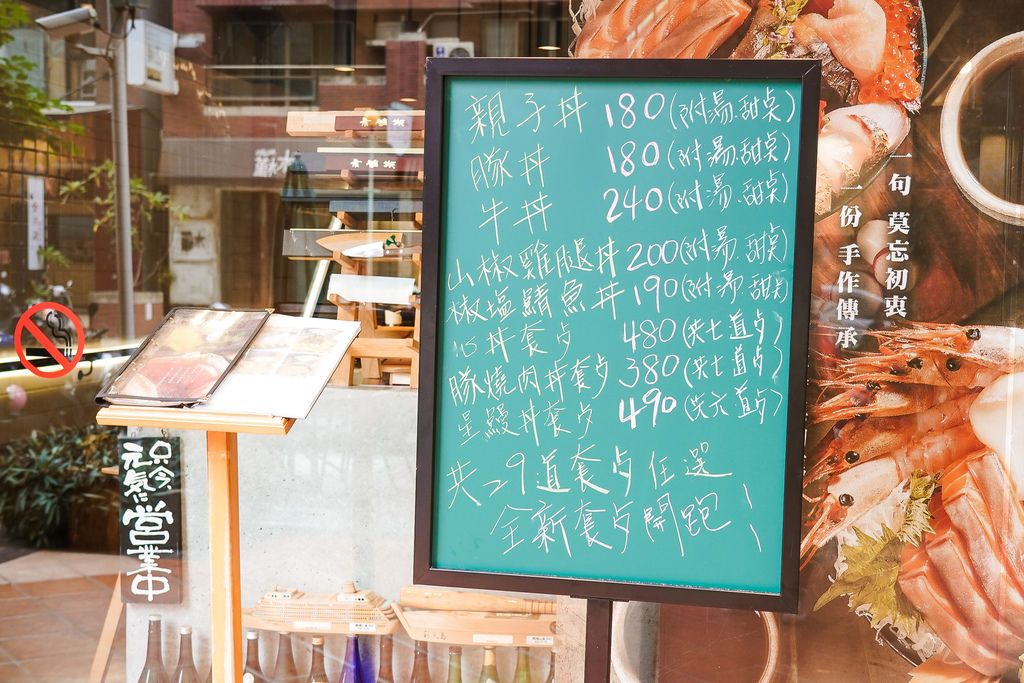 親子丼 180(附湯.甜桌)
豚丼 180(附湯.甜桌)
牛丼 240(附湯.甜桌)
山椒雞腿丼 200(附湯.甜桌)
椒塩鯖魚丼 190(附湯.甜桌)
丼套歺 480(共七道歺)
豚燒肉丼套歺 380(共七道歺)
星鰻丼套歺 490(共六道歺)
共29道套歺任選
全新套歺開跑!
一句 莫忘初衷
一份 手作傳承
只今
元気に
営業中